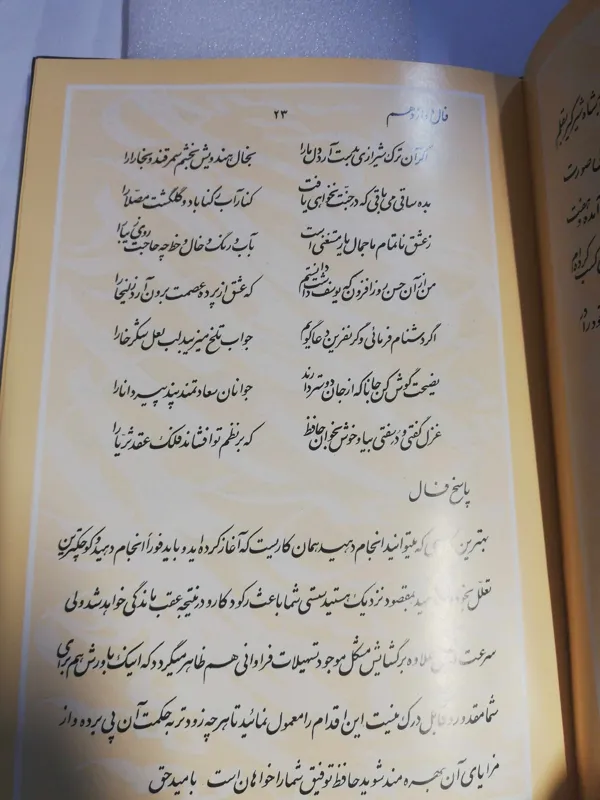 فال دوازدهم ۲۳
اگر آن ترک شیرازی بدست آرد دل ما را بخال هندویش بخشم سمرقند و بخارا را
بده ساقی می باقی که در جنت نخواهی یافت کنار آب رکناباد و گلگشت مصلا را
ز عشق ناتمام ما جمال یار مستغنی است بآب و رنگ و خال و خط چه حاجت روی زیبا را
من از آن حسن روز افزون که یوسف داشت دانستم که عشق از پرده عصمت برون آرد زلیخا را
اگر دشنام فرمائی و گر نفرین دعا گویم جواب تلخ میزیبد لب لعل شکر خا را
نصیحت گوش کن جانا که از جان دوستر دارند جوانان سعادتمند پند پیر دانا را
غزل گفتی و در سفتی بیا و خوش بخوان حافظ که بر نظم تو افشاند فلک عقد ثریا را
پاسخ فال
بهترین که میتوانید انجام دهید همان کاریست که آغاز کرده اید و باید فوراً انجام دهید و کوچکترین
تعلل بمقصود نزدیک هستید سستی شما باعث رکود کار و در نتیجه عقب ماندگی خواهد شد ولی
سرعت علاوه بر گشایش مشکل موجود تسهیلات فراوانی هم ظاهر میگردد که اینک باورش هم برای
شما مقدور و قابل درک نیست این اقدام را معمول نمائید تا هر چه زودتر به حکمت آن پی برده و از
مزایای آن بهره مند شوید حافظ توفیق شما را خواهان است بامید حق
بزشاه شیر گیر بقلم
صورت
آمده
کرده‌ام